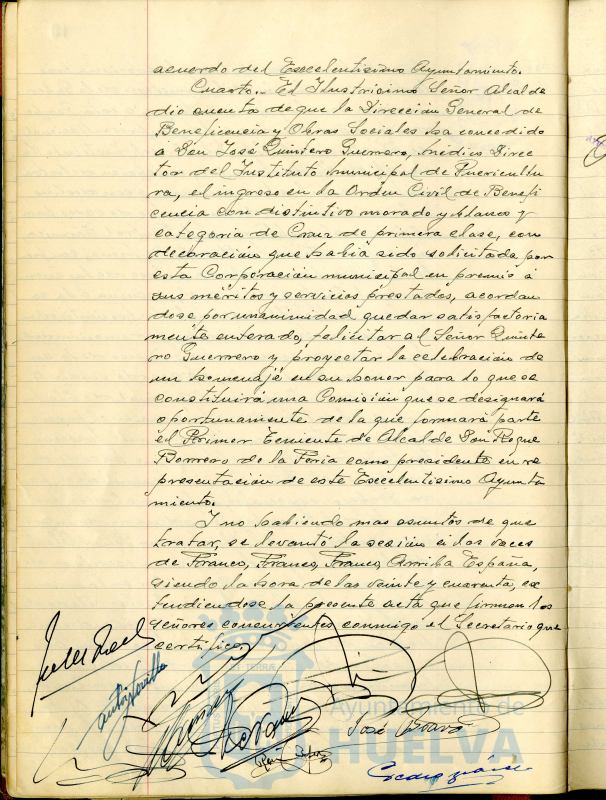 acuerdo del Excelentisimo Ayuntamiento.
Cuarto.- El Ilustrisimo Señor Alcalde
dio cuenta de que la Dirección General de
Beneficencia y Obras Sociales ha concedido
a Don José Quintero Guerrero, Médico Direc
tor del Instituto Municipal de Puericultu
ra, el ingreso en la Orden Civil de Benefi
cencia con distintivo morado y blanco y
categoria de Cruz de primera clase, con
decoración que habia sido solicitada por
esta Corporación municipal en premio á
sus méritos y servicios prestados, acordan
dose por unanimidad quedar satisfactoria
mente enterado, felicitar al Señor Quinte
ro Guerrero y proyectar la celebración de
un homenaje en su honor para lo que se
constituirá una Comisión que se designará
oportunamente de la que formará parte
el Primer Teniente de Alcalde Don Roque
Borrero de la Feria como presidente en re
presentación de este Excelentisimo Ayunta
miento.
Y no habiendo mas asuntos de que
tratar, se levantó la sesión á las voces
de Franco, Franco, Franco, Arriba España,
siendo la hora de las veinte y cuarenta, ex
tendiendose la presente acta que firman los
señores concurrentes conmigo el Secretario que
certifico.
José Bravo
Ayuntamiento de
HUELVA